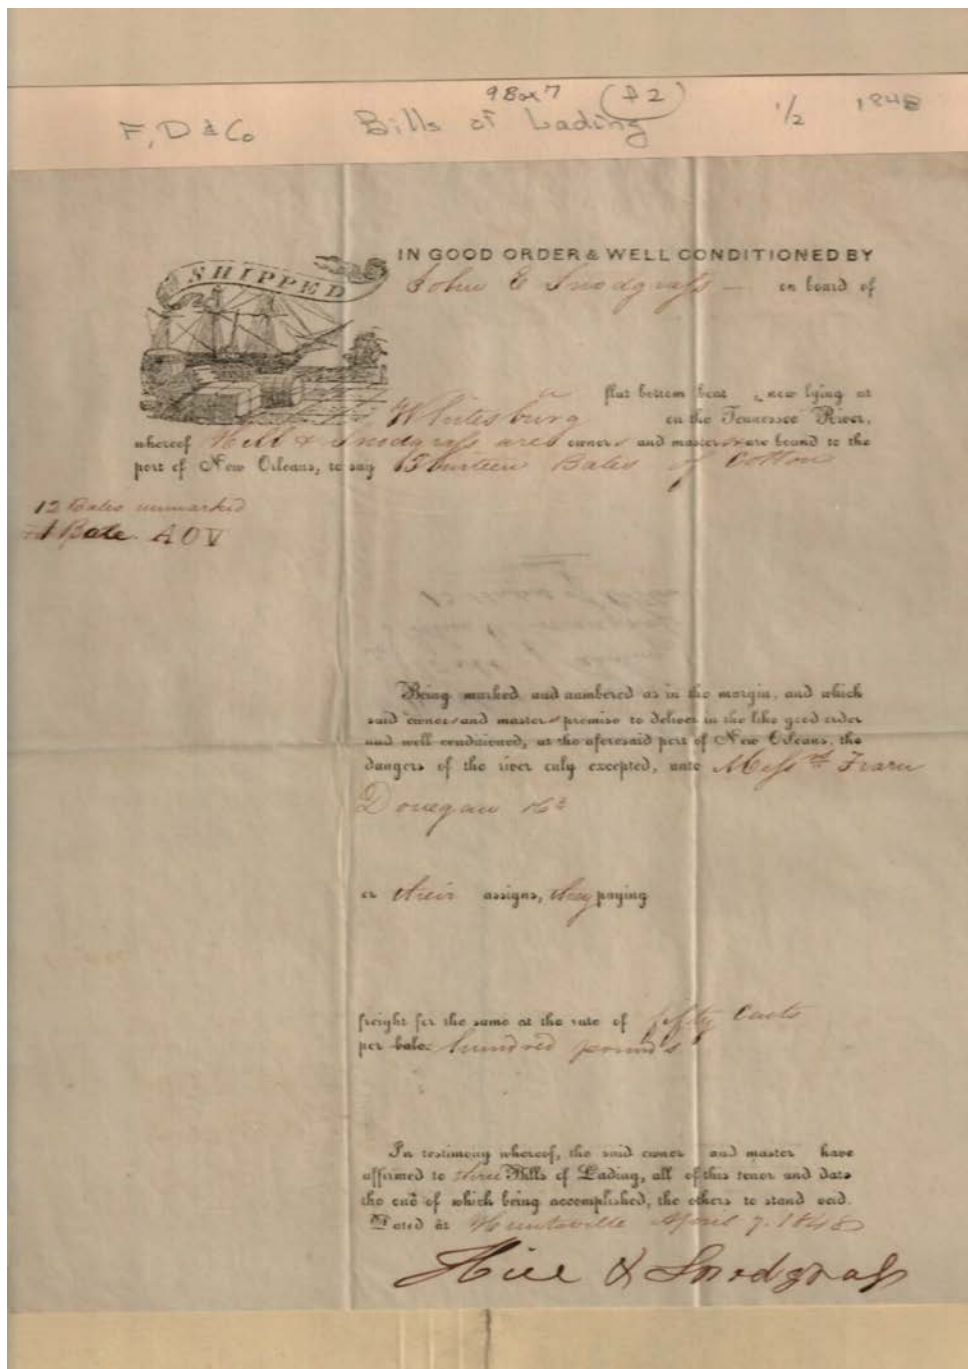 9 Box 7 (f2)
F, D & Co Bills of Lading 1/2 1848
SHIPPED
IN GOOD ORDER & WELL CONDITIONED BY
John E Snodgrass — on board of
a flat bottom boat, now lying at
Whitesburg on the Tennessee River,
whereof Hill & Snodgrass are owners and masters are bound to the
port of New Orleans, to say Thirteen Bales of Cotton
12 Bales unmarked
1 Bale. AOV
Being marked and numbered as in the margin, and which
said owner and master promise to deliver in the like good order
and well conditioned, at the aforesaid port of New Orleans, the
dangers of the river only excepted, unto Messrs Fearn
Donegan & Co
or their assigns, they paying
freight for the same at the rate of fifty Cents
per bale hundred pounds
In testimony whereof, the said owner and master have
affirmed to three Bills of Lading, all of this tenor and date
the one of which being accomplished, the others to stand void.
Dated at Huntsville April 7. 1848
Hill & Snodgrass